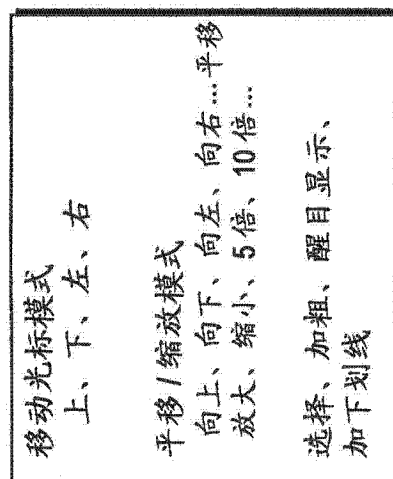 移动光标模式
上、下、左、右
平移/缩放模式
向上、向下、向左、向右...平移
放大、缩小、5倍、10倍...
选择、加粗、醒目显示、
加下划线